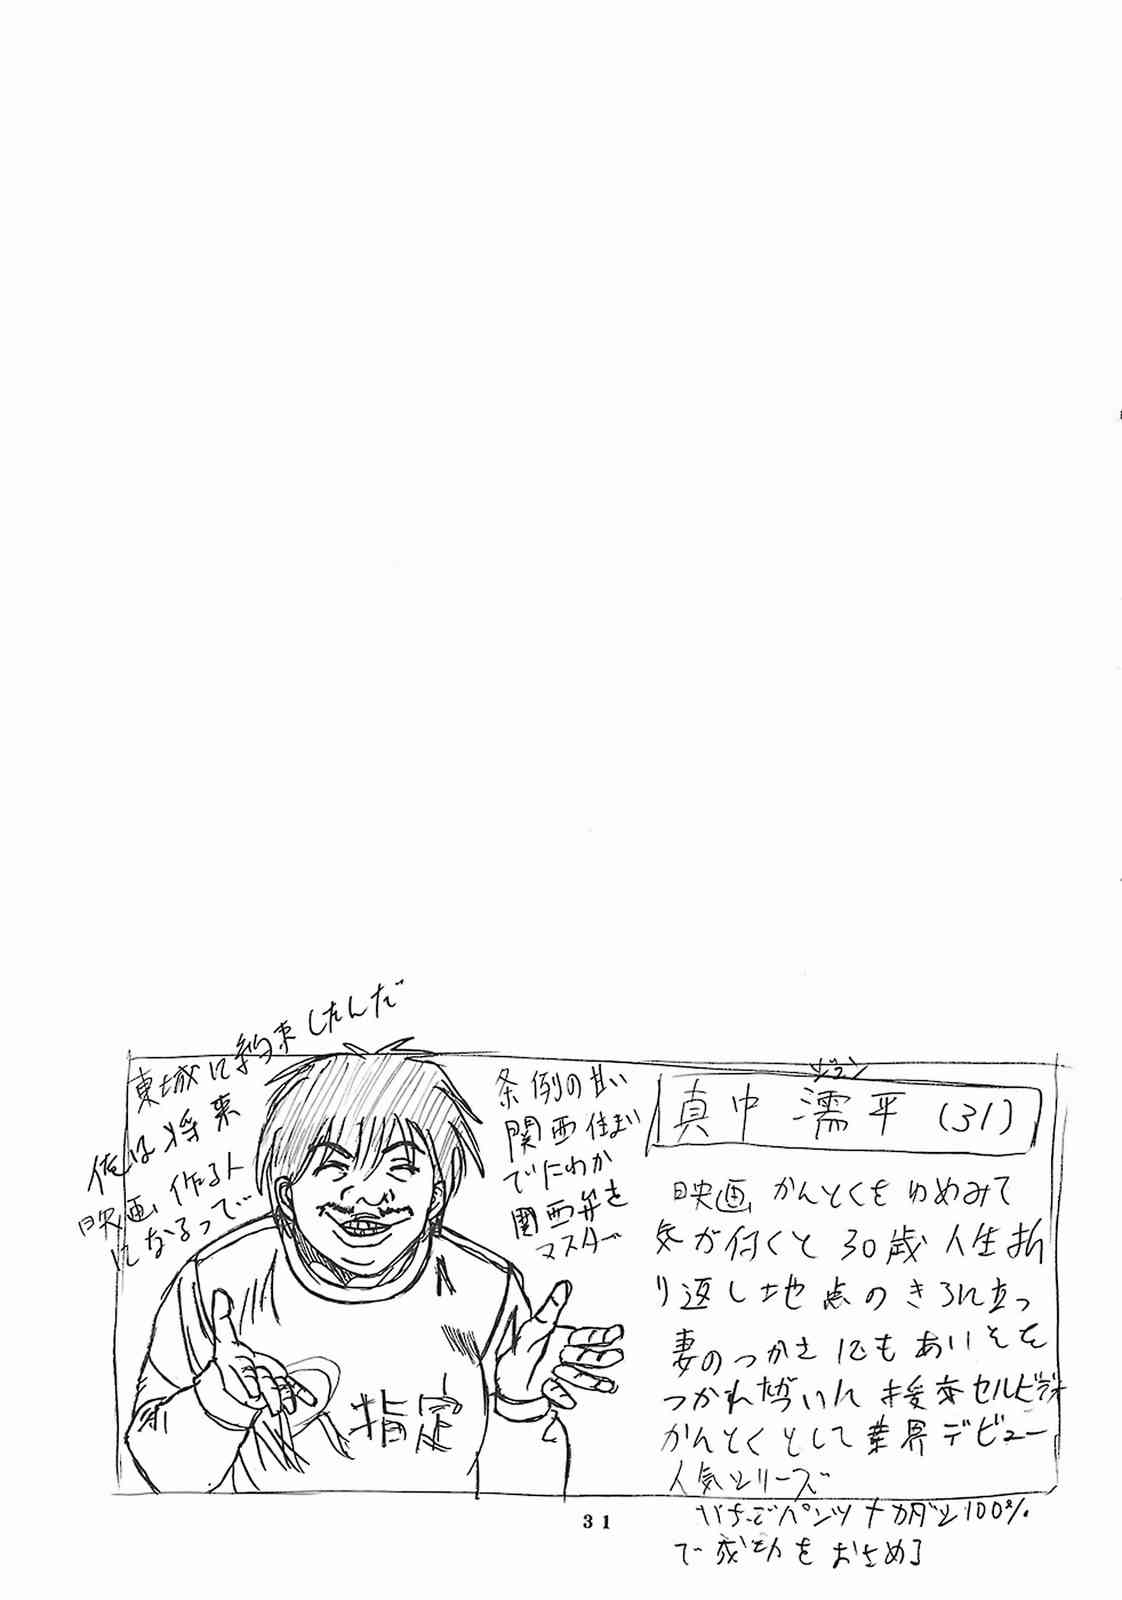 東城に約束したんだ
俺は将来
映画作る人
になるってで
条例の甘い
関西住まい
でにわか
関西弁を
マスター
ジュン
真中 濡平 (31)
映画かんとくをゆめみて
気が付くと30歳 人生折
り返し地点のきろに立つ
妻のつかさにもあいそを
つかれ
援交セルビデオ
かんとくとして業界デビュー
人気シリーズ
いちごパンツナカダシ100%
で成功をおさめる
指定
31